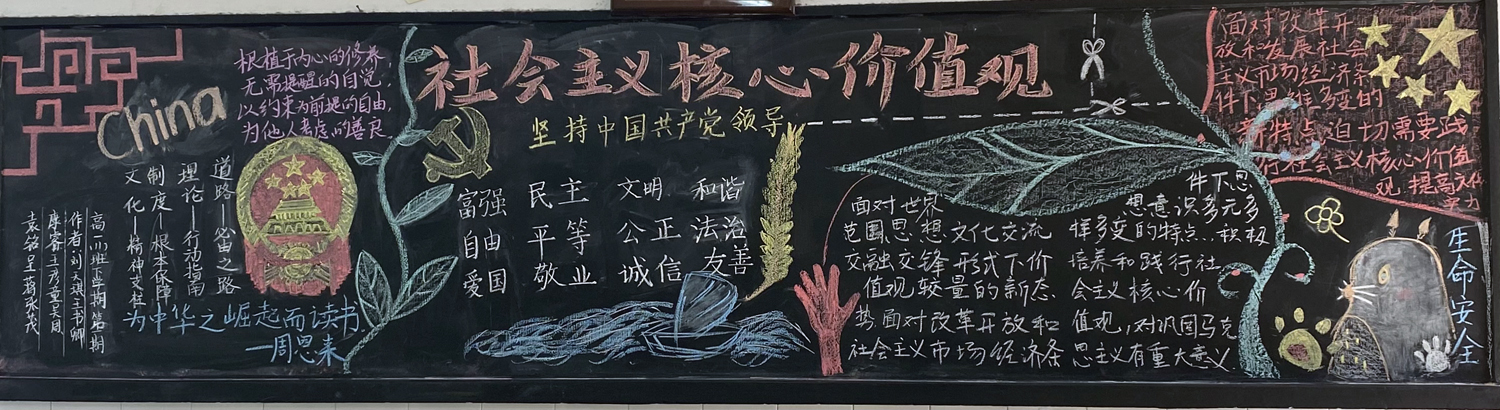 China
根植于内心的修养
无需提醒的自觉,
以约束为前提的自由,
为他人着想的善良
道路—必由之路
理论—行动指南
制度—根本保障
文化—精神支柱
为中华之崛起而读书
—周恩来
社会主义核心价值观
坚持中国共产党领导
富强 民主 文明 和谐
自由 平等 公正 法治
爱国 敬业 诚信 友善
面对世界
范围思想文化交流
交融交锋形式下价
值观较量的新态
势.面对改革开放和
社会主义市场经济条
件下思
想意识多元多
样多变的特点,积极
培养和践行社
会主义核心价
值观,对巩固马克
思主义有重大意义.
面对改革开
放和发展社会
主义市场经济条
件下思维多变的
新特点迫切需要践
行社会主义核心价值
观.提高
生命安全